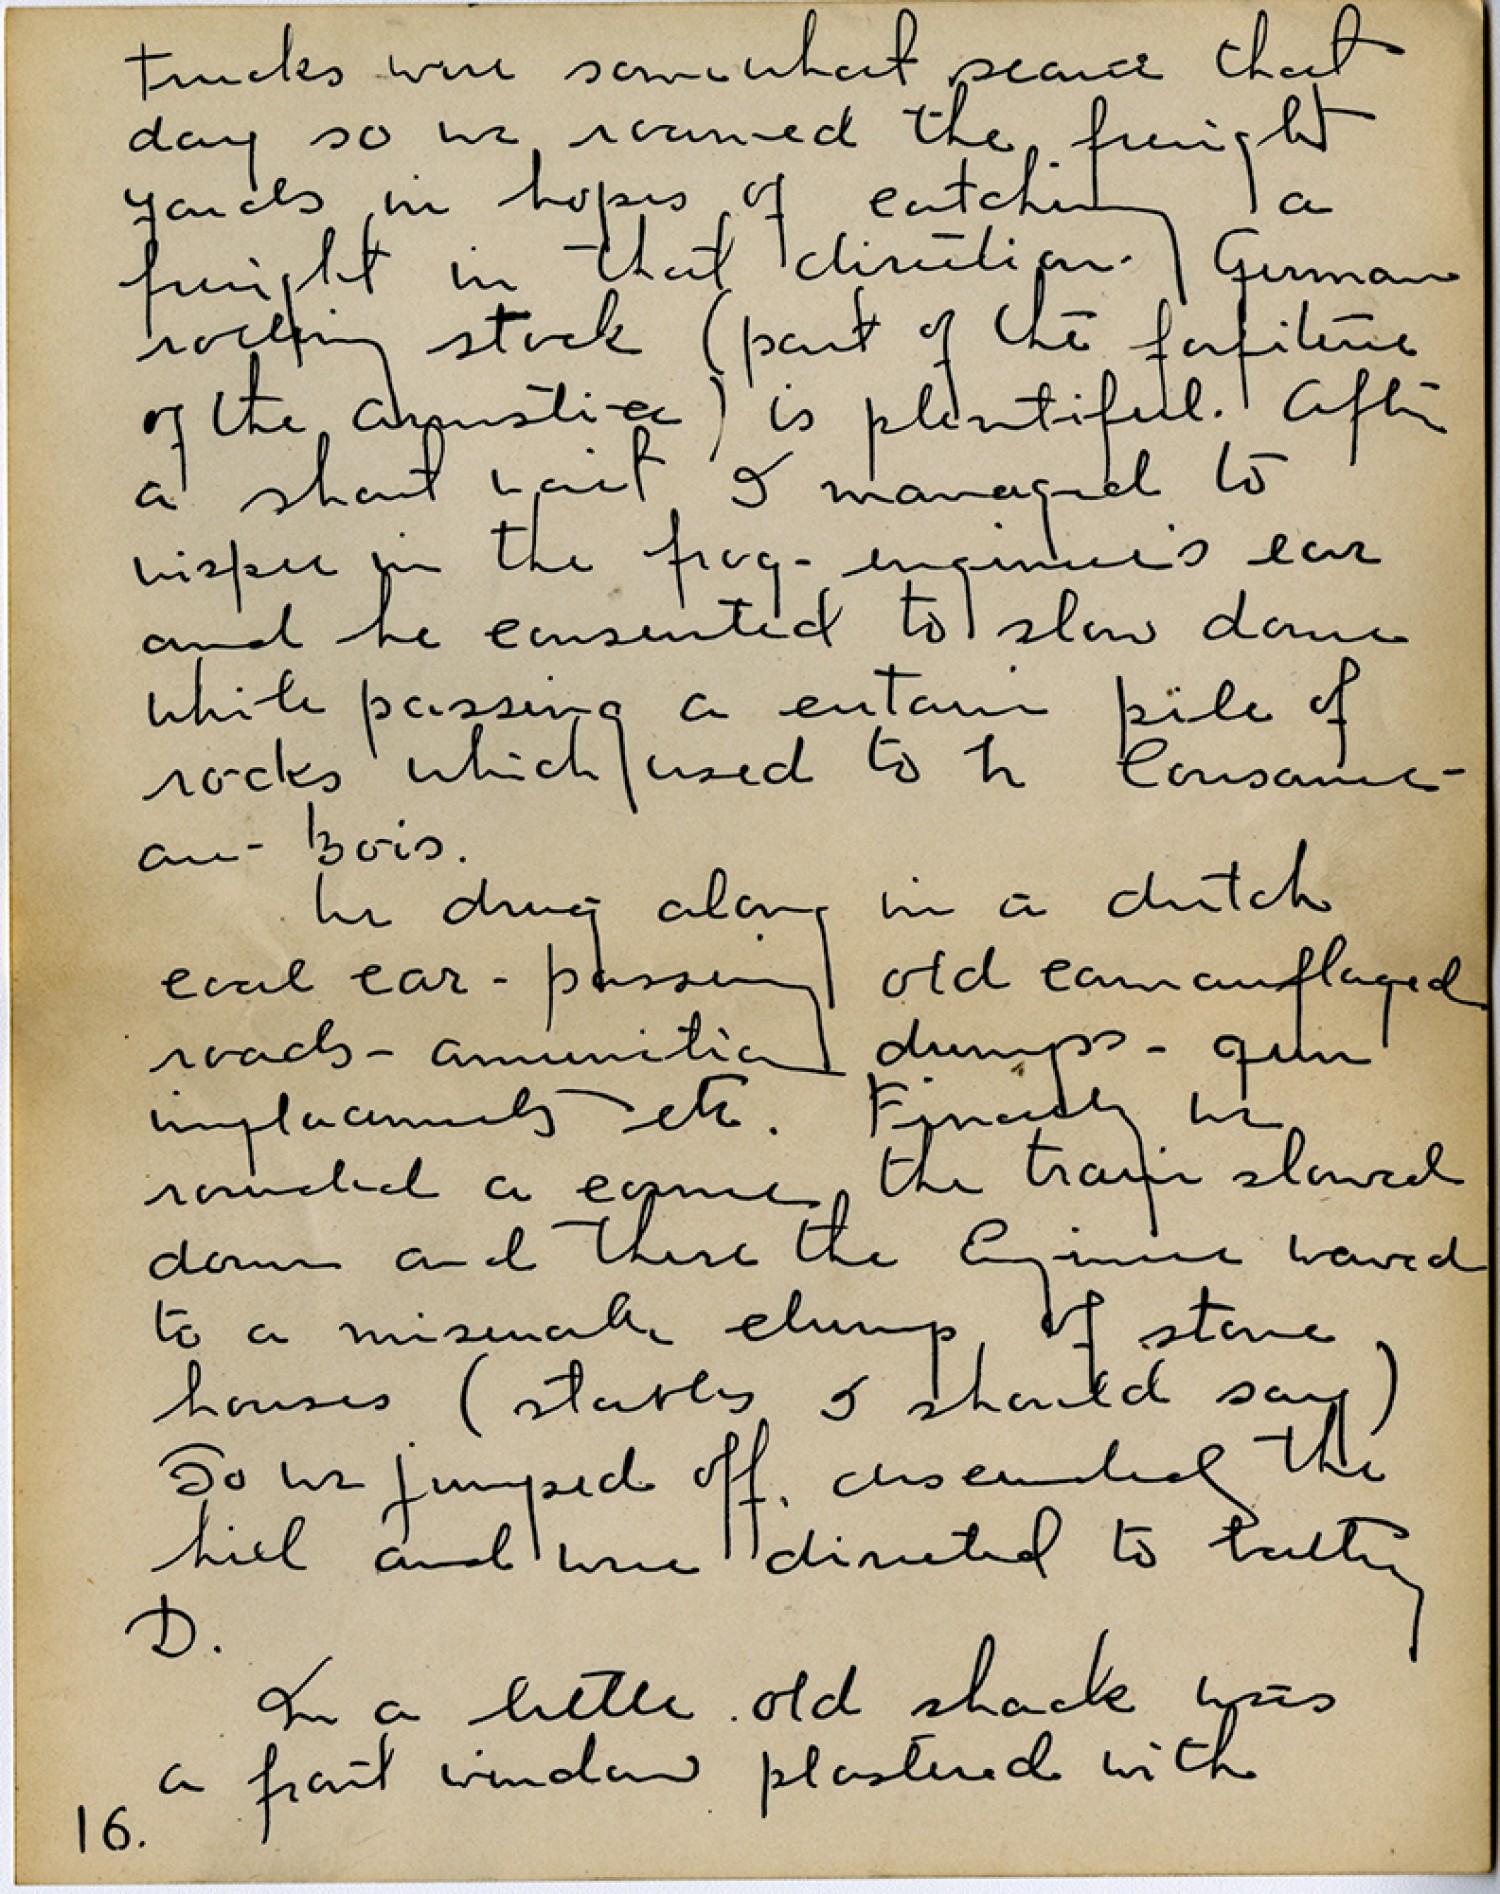 trucks were somewhat scarce that
day so we roamed the freight
yards in hopes of catching a
freight in that direction. German
rolling stock (part of the forfiture
of the armistice) is plentiful. After
a short wait I managed to
wisper in the frog-engineer's ear
and he consented to slow down
while passing a certain pile of
rocks which used to be
au-Bois.
We drug along in a dutch
coal car - passing old camauflaged
roads - amunition dumps - gun
implacements etc. Finally we
rounded a corner, the train slowed
down and there the Enginee waved
to a miserable clump of stone
houses (stables I should say)
So we jumped off, descended the
hill and were directed to battery
D.
In a little old shack was
a front window plastered with
16.